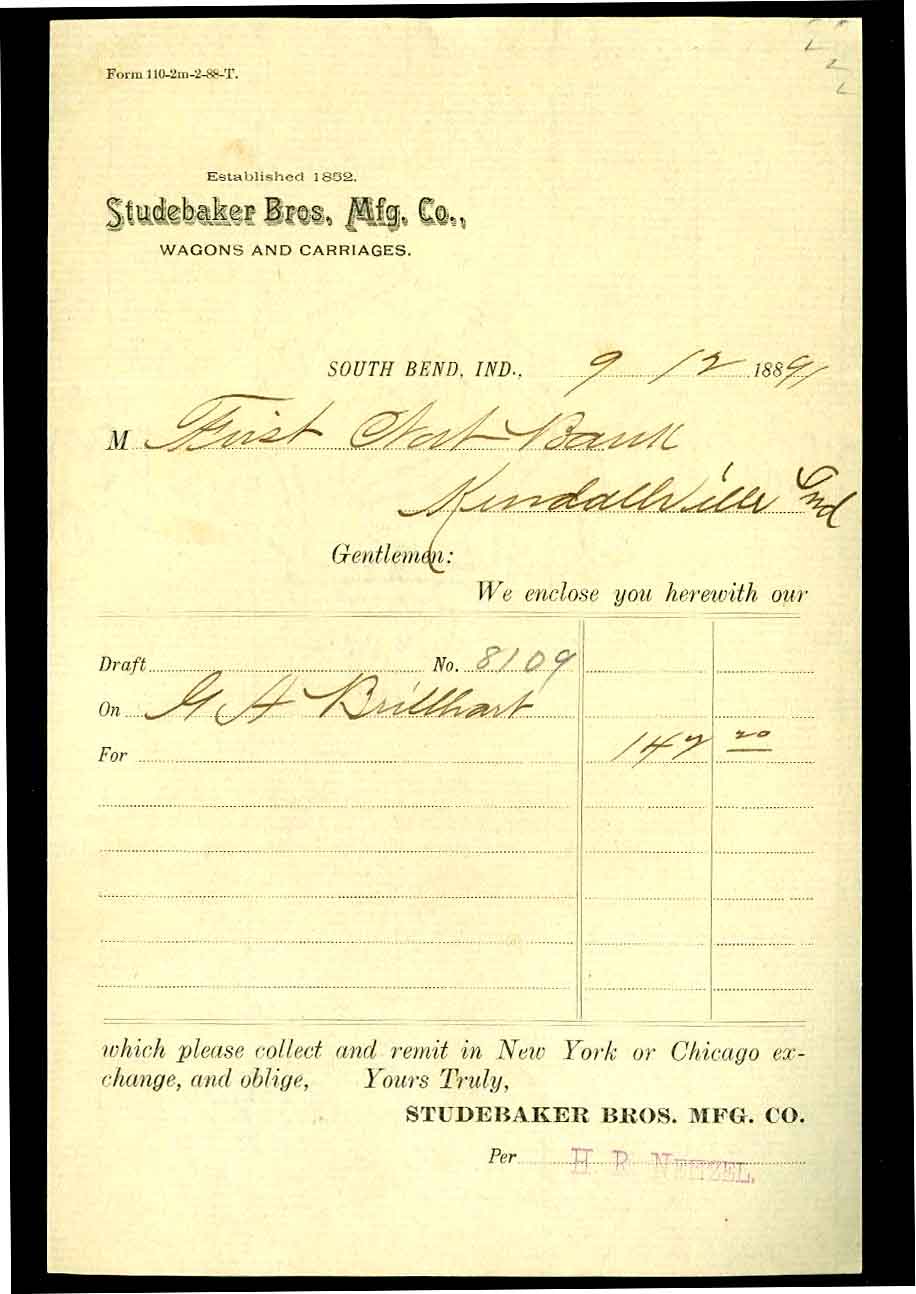 Form 110-2m-2-88-T.
Established 1852.
Studebaker Bros. Mfg. Co.,
WAGONS AND CARRIAGES.
SOUTH BEND, IND., 9 12 18891
M First Nat Bank
Kendallville Ind
Gentlemen:
We enclose you herewith our
Draft No. 8109
On G A Brillhart
For 142 20
which please collect and remit in New York or Chicago ex-
change, and oblige, Yours Truly,
STUDEBAKER BROS. MFG. CO.
Per H. R. NEITZEL.